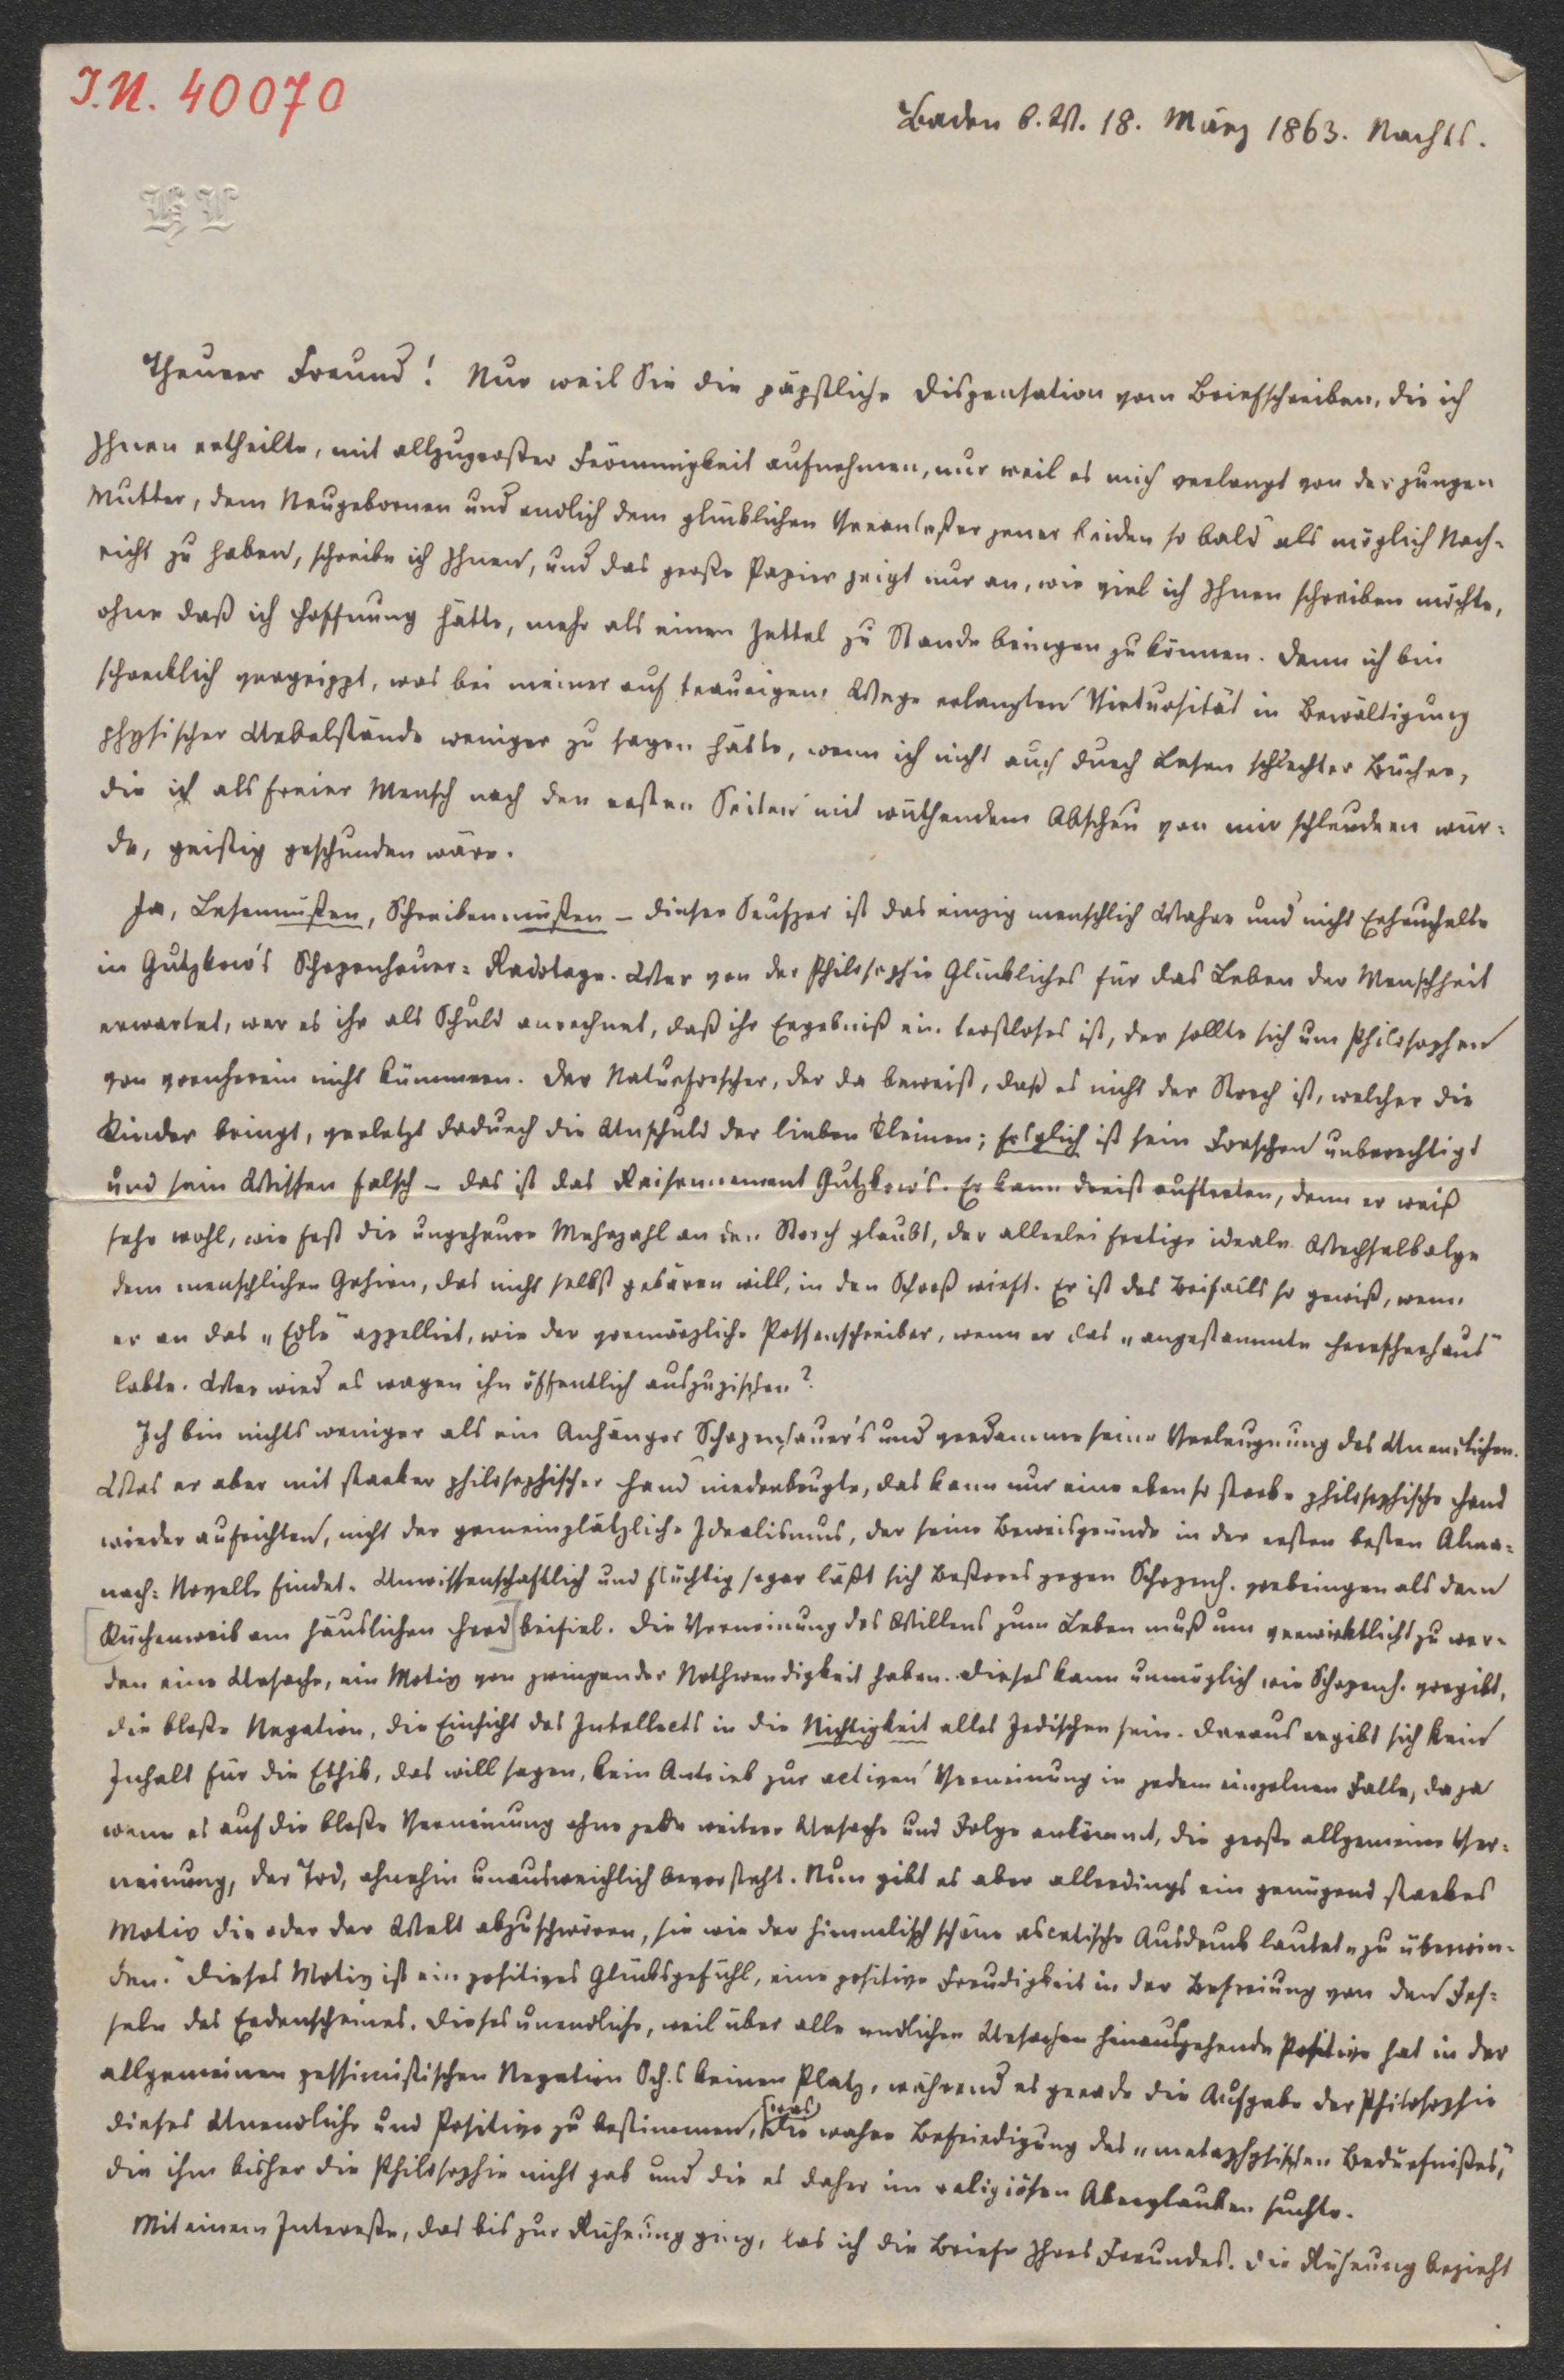 J.N. 40070
Baden b. W. 18. März 1863. Nachts.
HL
Theurer Freund! Nur weil Sie die päpstliche Dispensation vom Briefschreiben, die ich
Ihnen ertheilte, mit allzugroßer Frömmigkeit aufnehmen, nur weil es mich verlangt von der jungen
Mutter, dem Neugebornen und endlich dem glücklichen Veranlaßer jener beiden so bald als möglich Nach-
richt zu haben, schreibe ich Ihnen, und das große Papier zeigt nur an, wie viel ich Ihnen schreiben möchte,
ohne daß ich Hoffnung hätte, mehr als einen Zettel zu Stande bringen zu können. Denn ich bin
schrecklich vergrippt, was bei meiner auf traurigem Wege erlangten Virtuosität in Bewältigung
physischer Uebelstände weniger zu sagen hätte, wenn ich nicht auch durch Lesen schlechter Bücher,
die ich als freier Mensch nach den ersten Seiten mit wüthendem Abscheu von mir schleudern wür-
de, geistig geschunden wäre.
Ja, Lesenmüßen, Schreibenmüßen – dieser Seufzer ist das einzig menschlich Wahre und nicht Erheuchelte
in Gutzkow's Schopenhauer-Radotage. Wer von der Philosophie Glückliches für das Leben der Menschheit
erwartet, wer es ihr als Schuld anrechnet, daß ihr Ergebniß ein trostloses ist, der sollte sich um Philosophen
von vornherein nicht kümmern. Der Naturforscher, der da beweist, daß es nicht der Storch ist, welcher die
Kinder bringt, verletzt dadurch die Unschuld der lieben Kleinen; folglich ist sein Forschen unberechtigt
und sein Wissen falsch – das ist das Raisonnement Gutzkow's. Er kann dreist auftreten, denn er weiß
sehr wohl, wie fest die ungeheure Mehrzahl an den Storch glaubt, der allerlei fertige ideale Wechselbalge
dem menschlichen Gehirn, das nicht selbst gebären will, in den Schooß wirft. Er ist des Beifalls so gewiß, wenn
er an das „Edle“ appellirt, wie der vormärzliche Possenschreiber, wenn er das „angestammte Herrscherhaus“
lobte. Wer wird es wagen ihn öffentlich auszuzischen?
Ich bin nichts weniger als ein Anhänger Schopenhauer's und verdamme seine Verleugnung des Unendlichen.
Was er aber mit starker philosophischer Hand niederbeugte, das kann nur eine eben so starke philosophische Hand
wieder aufrichten, nicht der gemeinplätzliche Idealismus, der seine Beweisgründe in der ersten besten Alma-
nach-Novelle findet. Unwissenschaftlich und flüchtig sogar läßt sich Beßeres gegen Schopenh. vorbringen als dem
[Küchenweib am häuslichen Herd] beifiel. Die Verneinung des Willens zum Leben muß um verwirktlicht zu wer-
den eine Ursache, ein Motiv von zwingender Nothwendigkeit haben. Dieses kann unmöglich wie Schopenh. vorgibt,
die bloße Negation, die Einsicht des Intellects in die Nichtigkeit alles Irdischen sein. Daraus ergibt sich kein
Inhalt für die Ethik, das will sagen, kein Antrieb zur activen Verneinung in jedem einzelnen Falle, da ja
wenn es auf die bloße Verneinung ohne jede weitere Ursache und Folge ankömmt, die große allgemeine Ver-
neinung, der Tod, ohnehin unausweichlich bevorsteht. Nun gibt es aber allerdings ein genügend starkes
Motiv die oder der Welt abzuschwören, sie wie der himmlisch schöne ascetische Ausdruck lautet „zu überwin-
den.“ Dieses Motiv ist ein positives Glücksgefühl, eine positive Freudigkeit in der Befreiung von den Fes-
seln des Erdenscheines. Dieses unendliche, weil über alle endlichen Ursachen hinausgehende Positive hat in der
allgemeinen pessimistischen Negation Sch.s keinen Platz, während es gerade die Aufgabe der Philosophie
dieses Unendliche und Positive zu bestimmen, die wahre Befriedigung des „metaphysischen Bedürfnißes,“
die ihm bisher die Philosophie nicht gab und die es daher im religiösen Aberglauben suchte.
Mit einem Intereße, das bis zur Rührung ging, las ich die Briefe Ihres Freundes. Die Rührung bezieht